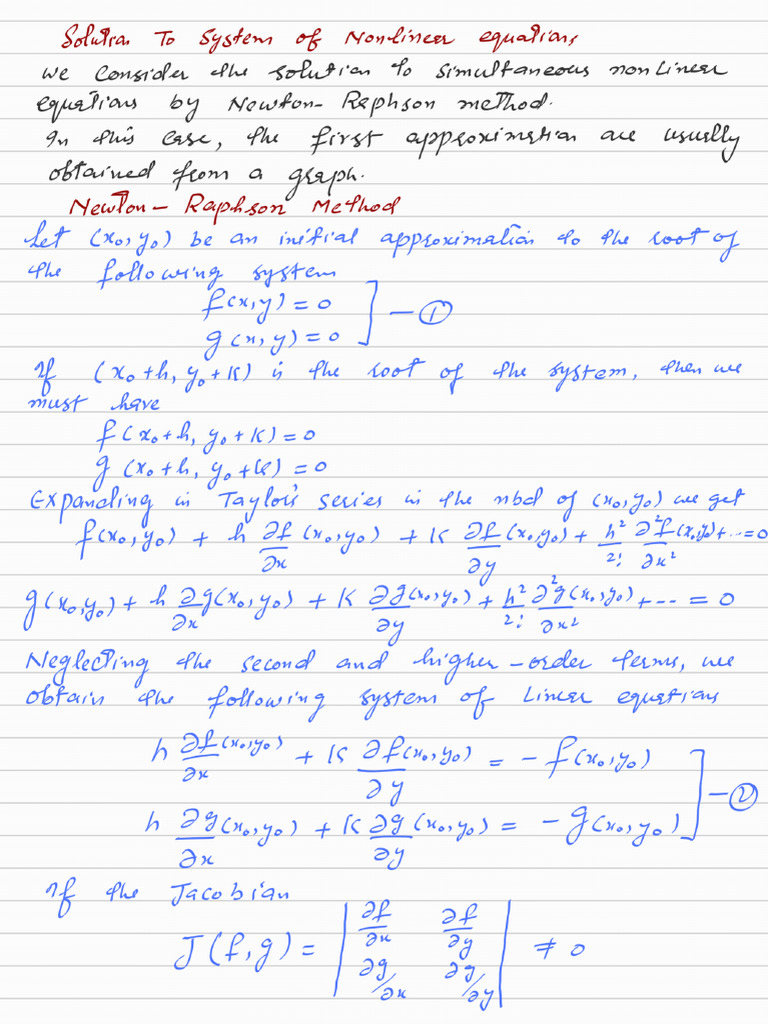 Solution To System of Nonlinear equations
We Consider the solution to simultaneous nonlinear
equations by Newton-Raphson method.
In this case, the first approximation are usually
obtained from a graph.
Newton - Raphson Method
Let (x₀, y₀) be an initial approximation to the root of
the following system
f(x, y) = 0
g(x, y) = 0 ] — ①
If (x₀+h, y₀+k) is the root of the system, then we
must have
f(x₀+h, y₀+k) = 0
g(x₀+h, y₀+k) = 0
Expanding in Taylor's series in the nbd of (x₀, y₀) we get
f(x₀, y₀) + h ∂f/∂x (x₀, y₀) + k ∂f/∂y (x₀, y₀) + h²/2! ∂²f/∂x² (x₀, y₀) + ... = 0
g(x₀, y₀) + h ∂g/∂x (x₀, y₀) + k ∂g/∂y (x₀, y₀) + h²/2! ∂²g/∂x² (x₀, y₀) + ... = 0
Neglecting the second and higher-order terms, we
obtain the following system of Linear equations
h ∂f/∂x (x₀, y₀) + k ∂f/∂y (x₀, y₀) = - f(x₀, y₀)
h ∂g/∂x (x₀, y₀) + k ∂g/∂y (x₀, y₀) = - g(x₀, y₀) ] — ②
If the Jacobian
J(f, g) = | ∂f/∂x ∂f/∂y |
| ∂g/∂x ∂g/∂y | ≠ 0